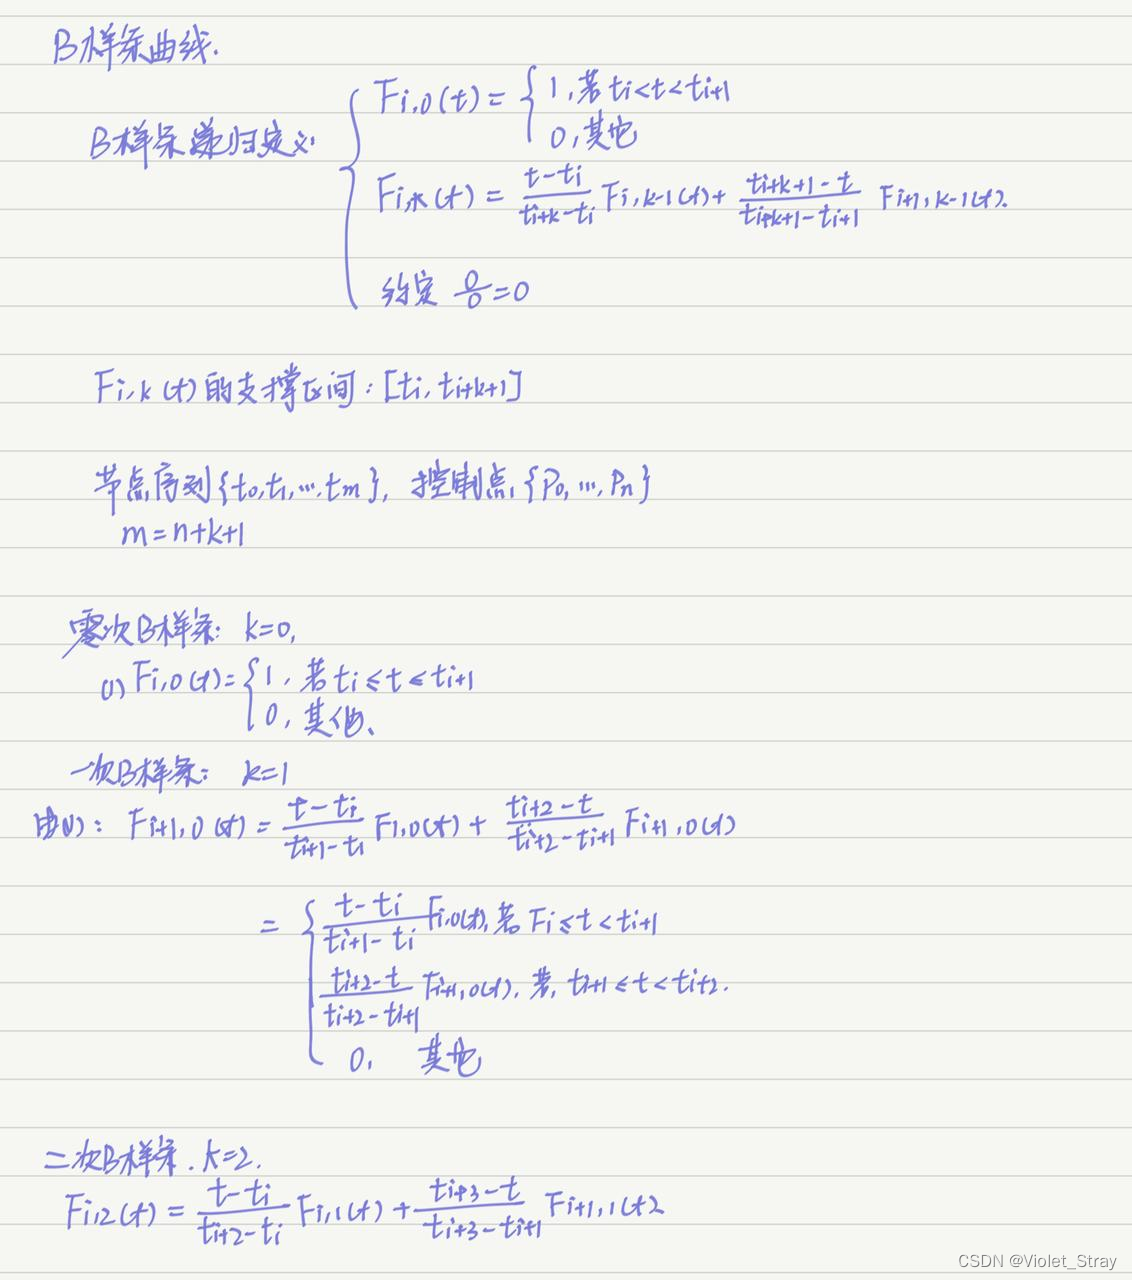 B样条曲线.
F_{i,0}(t) = { 1, 若 t_i < t < t_{i+1}
0, 其他
B样条递归定义:
F_{i,k}(t) = \frac{t-t_i}{t_{i+k}-t_i} F_{i,k-1}(t) + \frac{t_{i+k+1}-t}{t_{i+k+1}-t_{i+1}} F_{i+1,k-1}(t).
约定 \frac{0}{0}=0
F_{i,k}(t)的支撑区间: [t_i, t_{i+k+1}]
节点序列{t_0,t_1,...,t_m}, 控制点{P_0,...,P_n}
m=n+k+1
零次B样条: k=0,
(1) F_{i,0}(t)= { 1, 若 t_i ≤ t ≤ t_{i+1}
0, 其他、
一次B样条: k=1
由(1): F_{i+1,0}(t) = \frac{t-t_i}{t_{i+1}-t_i} F_{i,0}(t) + \frac{t_{i+2}-t}{t_{i+2}-t_{i+1}} F_{i+1,0}(t)
= { \frac{t-t_i}{t_{i+1}-t_i} F_{i,0}(t), 若 F_i ≤ t < t_{i+1}
\frac{t_{i+2}-t}{t_{i+2}-t_{i+1}} F_{i+1,0}(t), 若, t_{i+1} ≤ t < t_{i+2}.
0, 其他
二次B样条. k=2.
F_{i,2}(t) = \frac{t-t_i}{t_{i+2}-t_i} F_{i,1}(t) + \frac{t_{i+3}-t}{t_{i+3}-t_{i+1}} F_{i+1,1}(t)
CSDN @Violet_Stray